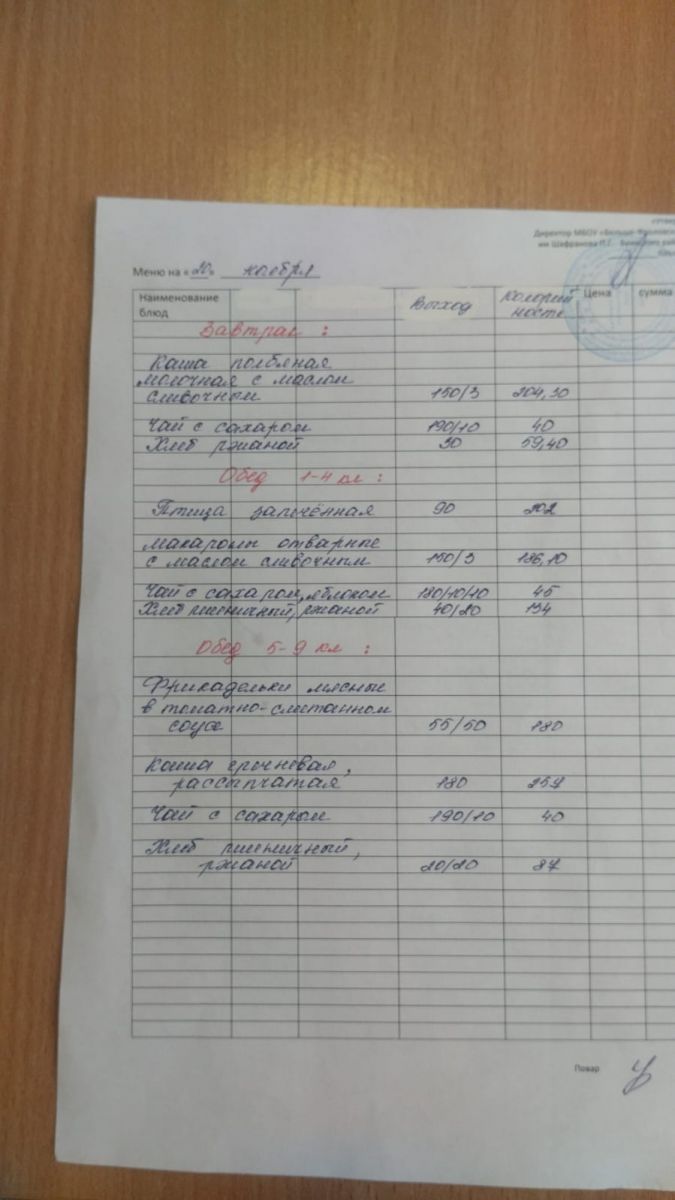 Директор МБОУ «Больше-Фроловск
им Шафранова П.Г. Буинского рай
Меню на «20» ноября
Наименование блюд Выход Калорий ность Цена сумма
Завтрак :
Каша полбяная
молочная с маслом
сливочным 150/3 204,30
Чай с сахаром 190/10 40
Хлеб ржаной 30 59,40
Обед 1-4 кл :
Птица запечённая 90 202
Макароны отварные
с маслом сливочным 150/3 186,10
Чай с сахаром, яблоком 180/10/10 45
Хлеб пшеничный, ржаной 40/20 134
Обед 5-9 кл :
Фрикадельки мясные
в томатно-сметанном
соусе 55/50 180
Каша гречневая,
рассыпчатая 180 257
Чай с сахаром 190/10 40
Хлеб пшеничный,
ржаной 20/20 87
Повар